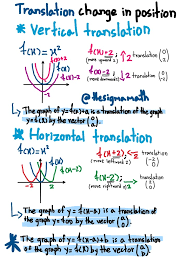 Translation change in position
* Vertical translation
f(x)=x²
f(x)+2
f(x)
f(x)-2
f(x)+2 ; ↑2 translation (0 2)
(moves upward 2)
f(x)-2 ; ↓2 translation (0 -2)
(moves downward 2)
@thesigmamath
The graph of y=f(x)+a is a translation of the graph
y=f(x) by the vector (0 a).
* Horizontal translation
f(x)=x²
f(x)
-2
2
f(x+2) ;
translation
(moves leftward 2)
f(x-2) ;
translation
(moves rightward 2)
The graph of y=f(x-a) is a translation of
the graph y=f(x) by the vector (a 0).
* The graph of y=f(x-a)+b is a translation
of the graph y=f(x) by the vector (a b).